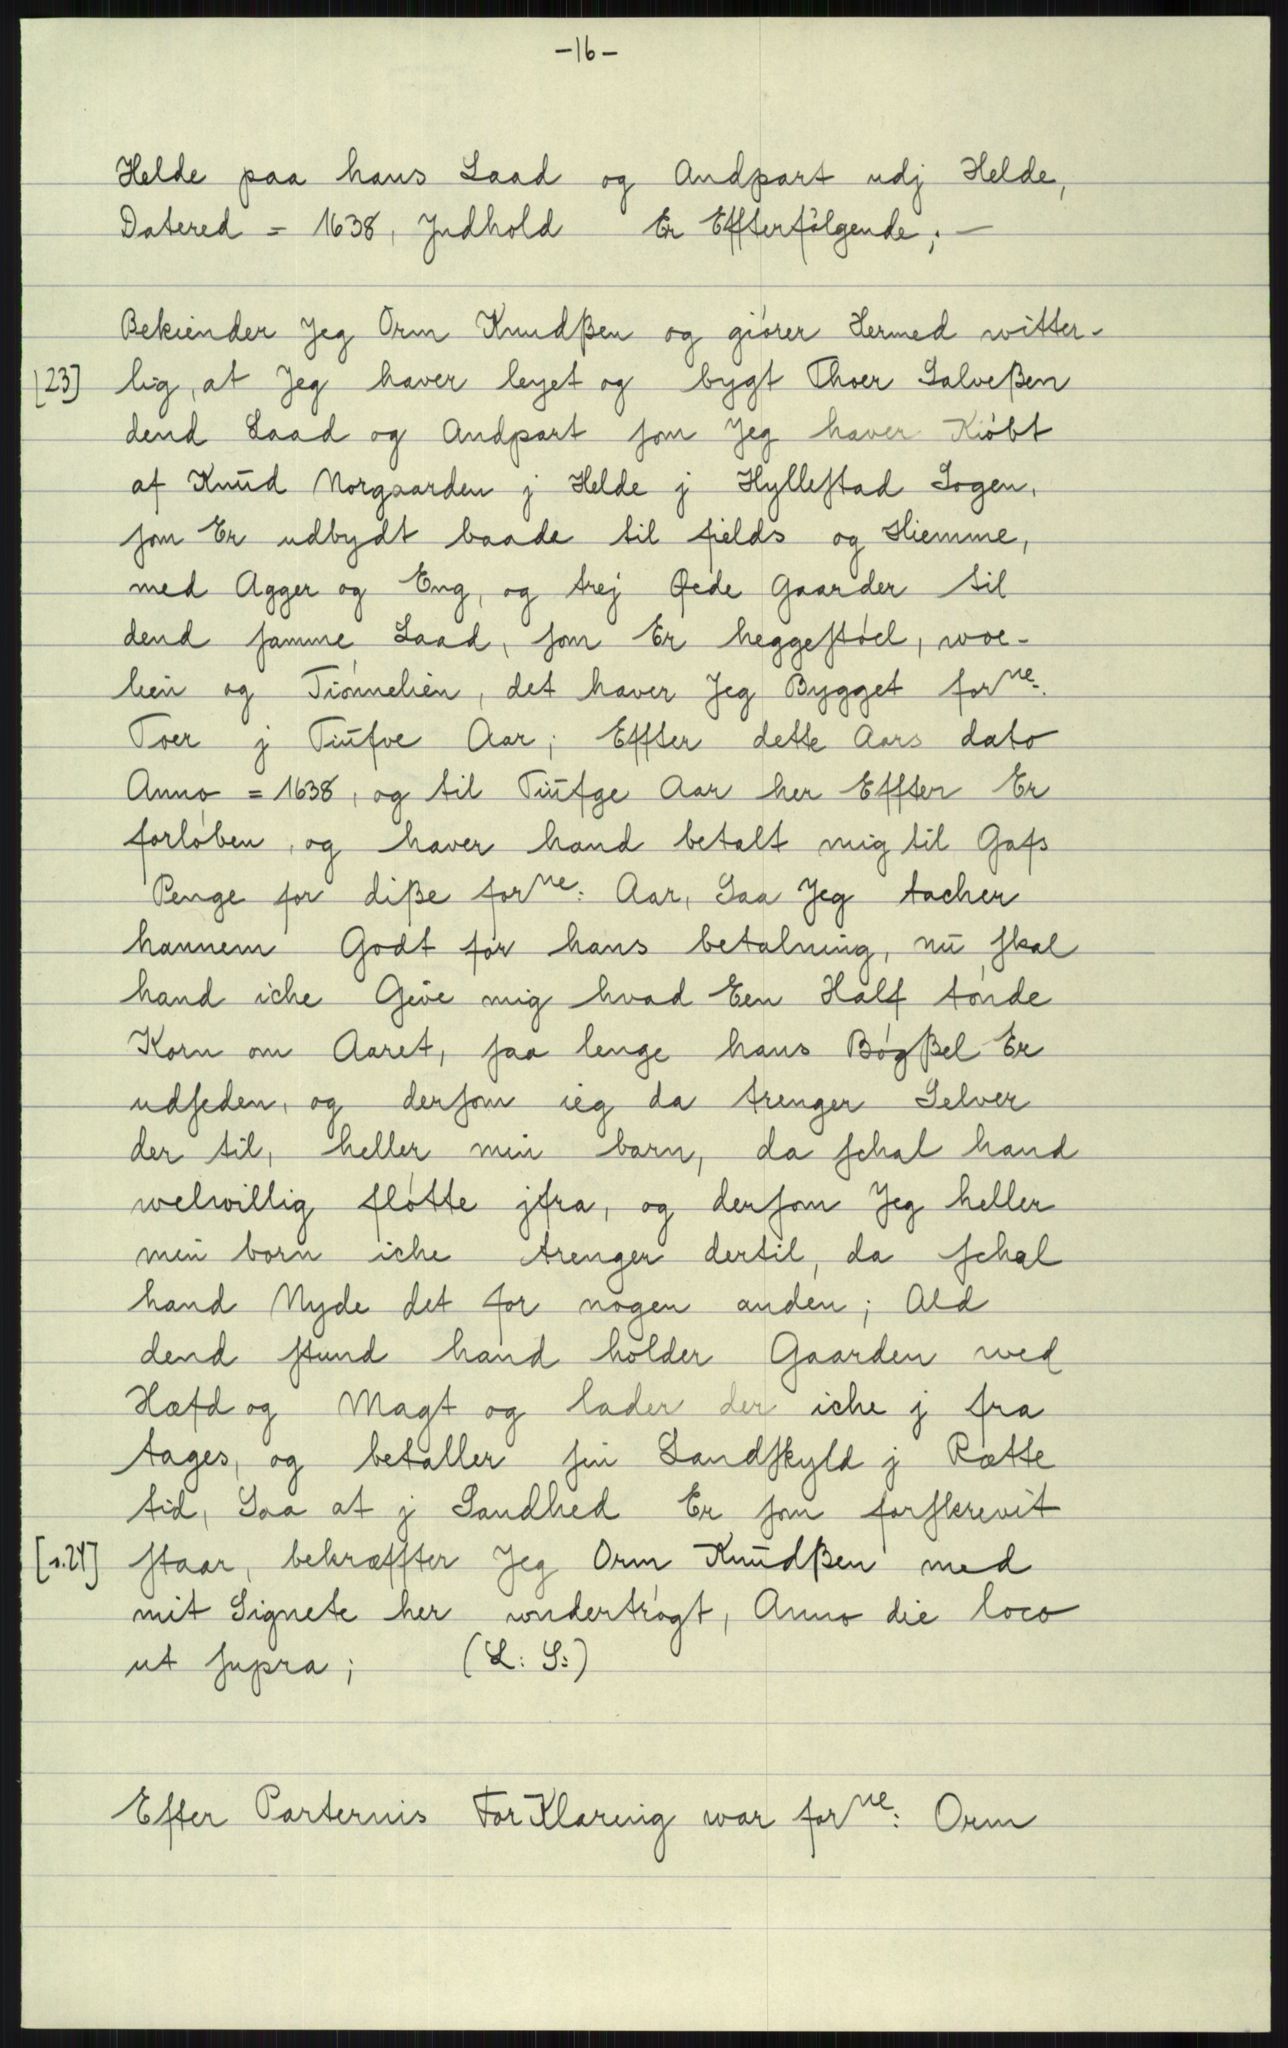 -16-
Helde paa hans Laad og Andpart udj Helde,
Datered = 1638, Jndhold Er Effterfølgende; —
Bekiender Jeg Orm Knudßen og giórer Hermed witter-
[23] lig, at Jeg haver leyet og bygt Thoer Salveßen
dend Laad og Andpart som Jeg haver Kióbt
af Knūd Norgaarden j Helde j Hyllestad Sogen,
som Er udbydt baade til fields og Hiemme,
med Agger og Eng, og trej Øede Gaarder til
dend samme Laad, som Er heggestóel, woe-
lien og Tiónnelien, det haver Jeg Bygget forne:
Toer j Tiūfve Aar; Effter dette Aars dato
Anno = 1638, og til Tiūfge Aar her Effter Er
forlóben, og haver hand betalt mig til Gafs
Penge for diße forne: Aar, Saa Jeg tacher
hannem Godt for hans betalning, nū skal
hand iche Give mig hvad Een Half tónde
Korn om Aaret, saa lenge hans Bógßel Er
udseden, og dersom ieg da trenger Selver
der til, heller min barn, da schal hand
welwillig flótte jfra, og dersom Jeg heller
min born iche trenger dertil, da schal
hand Nyde det for nogen anden; Ald
dend stund hand holder Gaarden wed
Hæfd og Magt og lader der iche j fra
tages, og betaller sin Landskyld j Rætte
tid, Saa at j Sandhed Er som forskrevit
[s.24] staar, bekræffter Jeg Orm Knūdßen med
mit Signete her wndertrógt, Anno die loco
ut supra; (L: S:)
Efter Parternis ForKlaring war forne: Orm